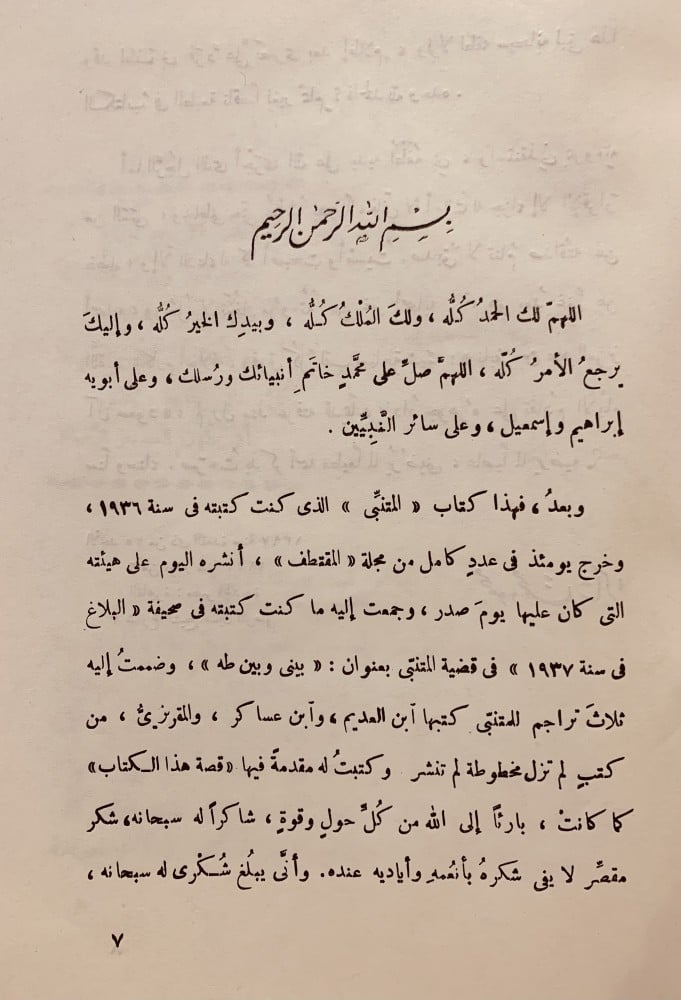 بِسْمِ اللهِ الرَّحْمٰنِ الرَّحِيمِ
اللهمّ لك الحمدُ كُلُّه ، ولكَ المُلْكُ كُلُّه ، وبيدِك الخيرُ كُلُّه ، وإليكَ
يرجعُ الأمرُ كُلّه ، اللهمَّ صلِّ على محمَّدٍ خاتَمِ أنبيائك ورُسلك ، وعلى أبويه
إبراهيم وإسمعيل ، وعلى سائر النَّبِيِّين .
وبعدُ ، فهذا كتاب « المتنبِّى » الذى كنت كتبته فى سنة ١٩٣٦ ،
وخرج يومئذ فى عددٍ كامل من مجلة « المقتطف » ، أنشره اليوم على هيئته
التى كان عليها يومَ صدر ، وجمعت إليه ما كنت كتبته فى صحيفة « البلاغ
فى سنة ١٩٣٧ » فى قضية المتنبّى بعنوان : « بينى وبين طه » ، وضممتُ إليه
ثلاثَ تراجم للمتنبّى كتبها ٱبن العديم ، وٱبن عساكر ، والمقريزىُّ ، من
كتبٍ لم تزل مخطوطة لم تنشر وكتبتُ له مقدمةً فيها «قصة هذا الـكتاب»
كما كانتْ ، بارئاً إلى الله من كُلِّ حولٍ وقوةٍ ، شاكراً له سبحانه، شكر
مقصِّر لا يفى شكرهُ بأنعُمهِ وأياديه عنده. وأنَّى يبلُغ شُكْرى له سبحانه ،
٧